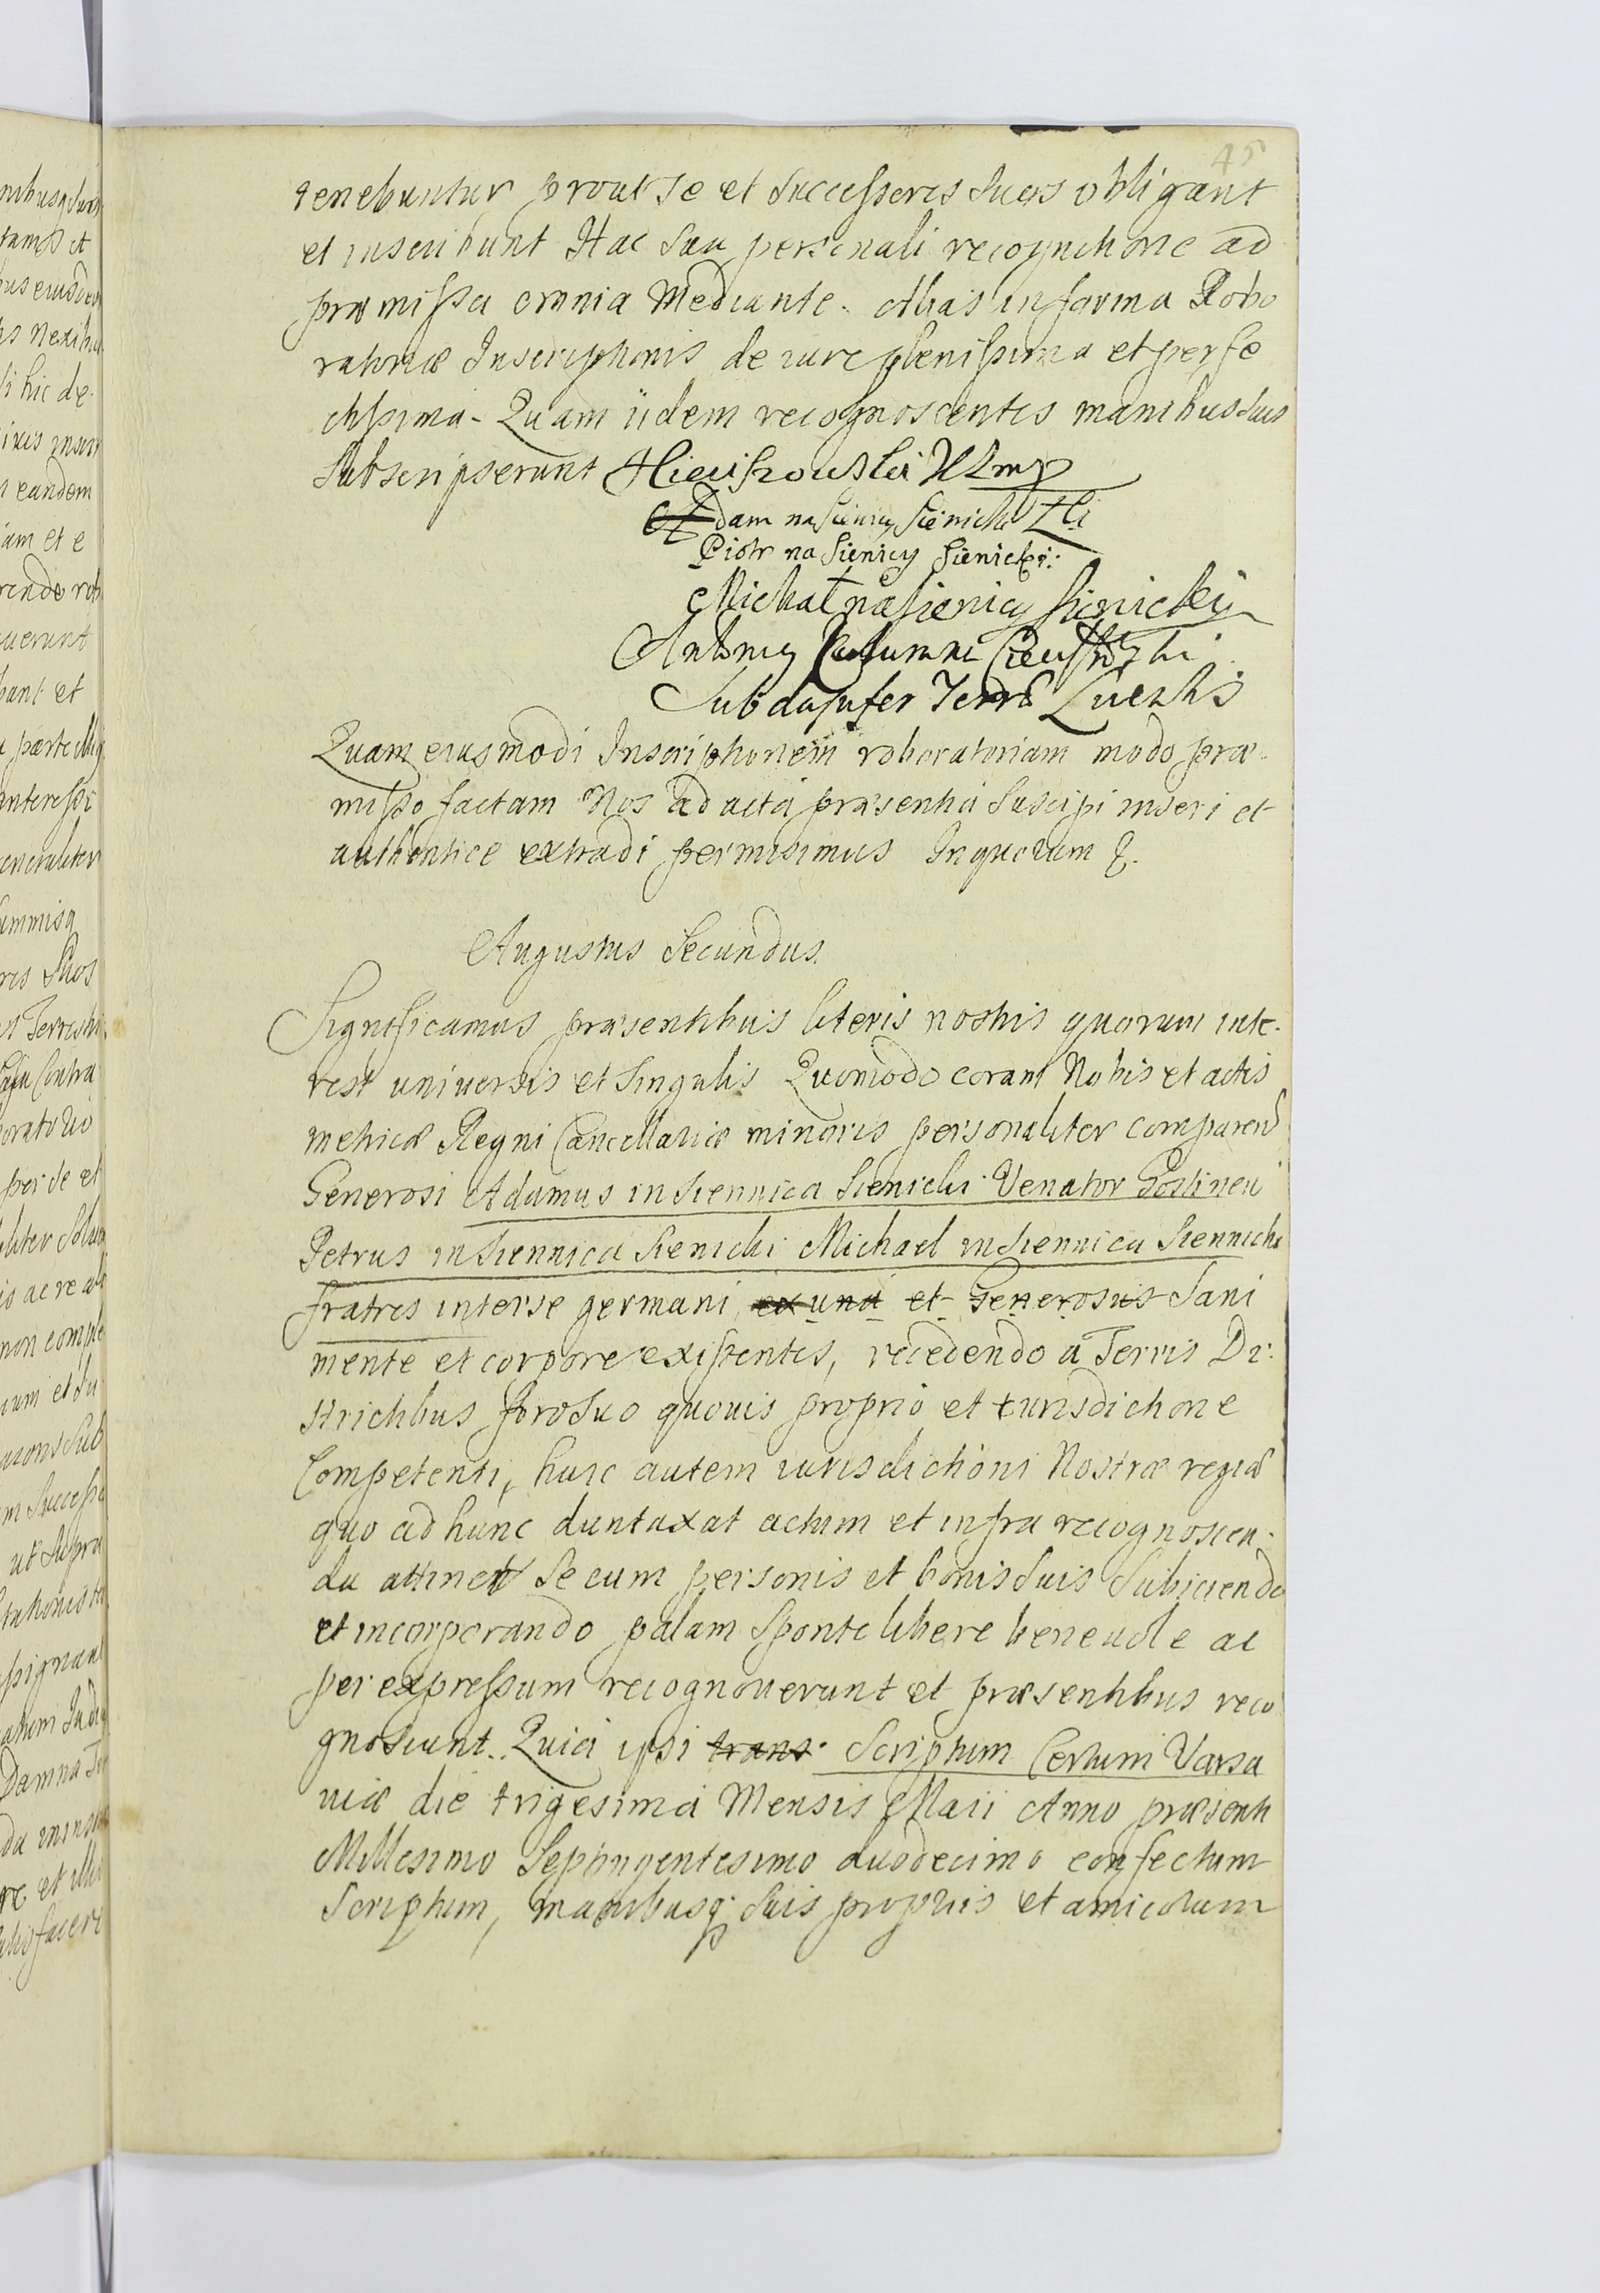 45
tenebuntur prout se et Successores suos obligant
et inscribunt Hac sua personali recognitione ad
præmissa omnia Mediante. Alias in forma Robo
ratoriæ Inscriptionis de iure plenissima et perfe
ctissima - Quam iidem recognoscentes manibus suis
Subscripserunt
Adam na Sienicy Sienicki
Piotr na Sienicy Sienicki:
Michał na Sienicy Sienicki
Antoni Kolumna
Subdapifer Terræ
Quam eiusmodi Inscriptionem roboratoriam modo præ-
misso factam Nos ad acta præsentia Suscipi inseri et
authentice extradi permisimus In quorum &.
Augustus Secundus.
Significamus præsentibus literis nostris quorum inte-
rest universis et Singulis Quomodo coram Nobis et actis
metricæ Regni Cancellariæ minoris personaliter comparen
Generosi Adamus in Siennica Sienicki Venator Gostinen
Petrus in Siennica Sienicki Michael in Siennica Siennicki
fratres inter se germani ex una et Generosus Sani
mente et corpore existentes, recedendo a Terris Di-
strictibus foro suo quovis proprio et iurisdictione
Competenti, huic autem iurisdictioni Nostræ regiæ
quo ad hunc duntaxat actum et infra recognoscen-
da attinet Se cum personis et bonis suis Subiciendo
et incorporando palam Sponte libere benevole ac
per expressum recognoverunt et præsentibus reco
gnoscunt. Quia ipsi trans Scriptum Certum Varsa
viæ die trigesima Mensis Maii Anno præsenti
Millesimo Septingentesimo duodecimo confectum
Scriptum, manibusq; Suis propriis et amicorum